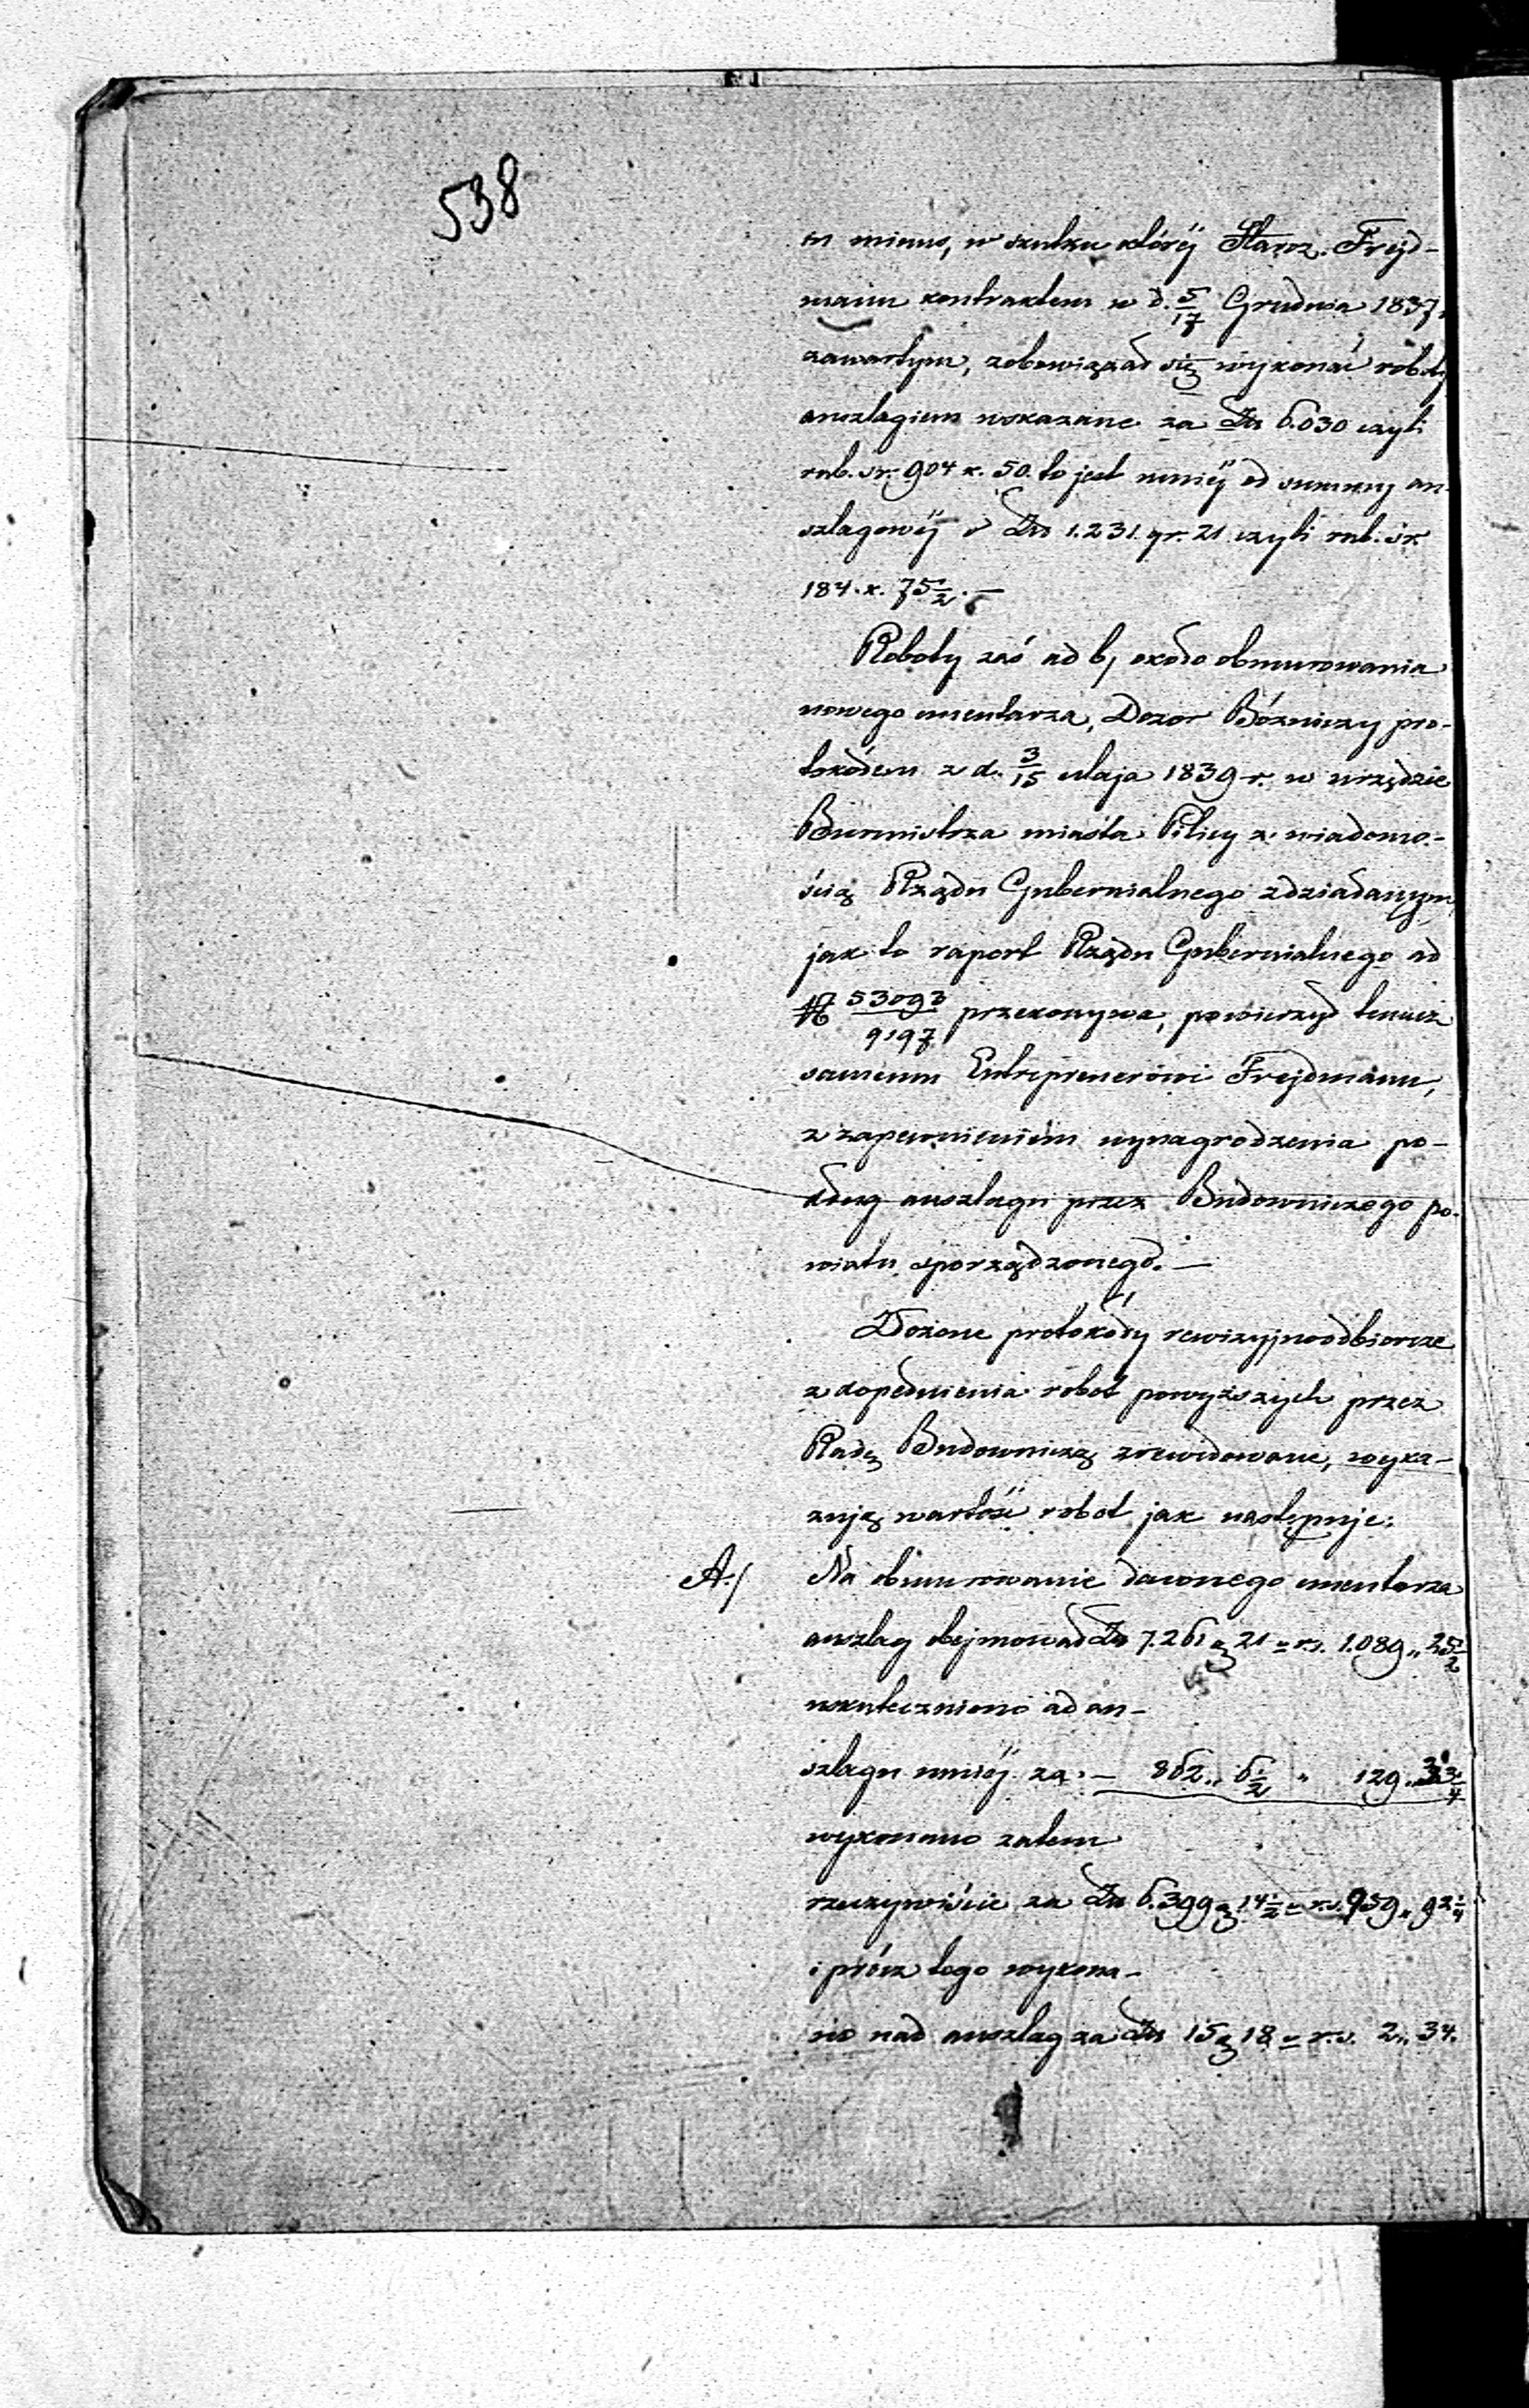 538
in minus, w skutku któréj Starz. Frejd-
mann kontraktem w d. 5/17 Grudnia 1837.
zawartym, zobowiązał się wykonać roboty
anszlagiem wskazane za Złp 6.030 czyli
rub. sr. 904 k. 50. to jest mniéj od summy an-
szlagowéj o Złp 1.231. gr. 21 czyli rub. sr.
184. k. 75½. —
Roboty zaś ad b, około obmurowania
nowego cmentarza, Dozor Bóżniczy pro-
tokółem z d. 3/15 Maja 1839 r. w urzędzie
Burmistrza miasta Pilicy z wiadomo-
ścią Rządu Gubernialnego zdziałanym,
jak to raport Rządu Gubernialnego ad
№ 53093/9197 przekonywa, powierzył temuż
samemu Entreprenerowi Frejdmann,
z zapewnieniem wynagrodzenia po-
dług anszlagu przez Budowniczego po-
wiatu sporządzonego. —
Złożone protokóły rewizyjnoodbiorcze
z dopełnienia robot powyższych przez
Radę Budowniczą zrewidowane, wyka-
zują wartość robot jak następuje:
A./ Na obmurowanie dawnego cmentarza
anszlag obejmował Złp 7.261 g 21 = rs. 1.089 „ 25½
uskuteczniono ad an-
szlagu mniéj za. — 862 „ 6½ „ 129 „ 33¼
wykonano zatem
rzeczywiście za Złp 6.399 g 14½ = r.s. 959 „ 92¼
i prócz tego wykona-
no nad anszlag za Złp 15 g 18 = r.s. 2 „ 34.